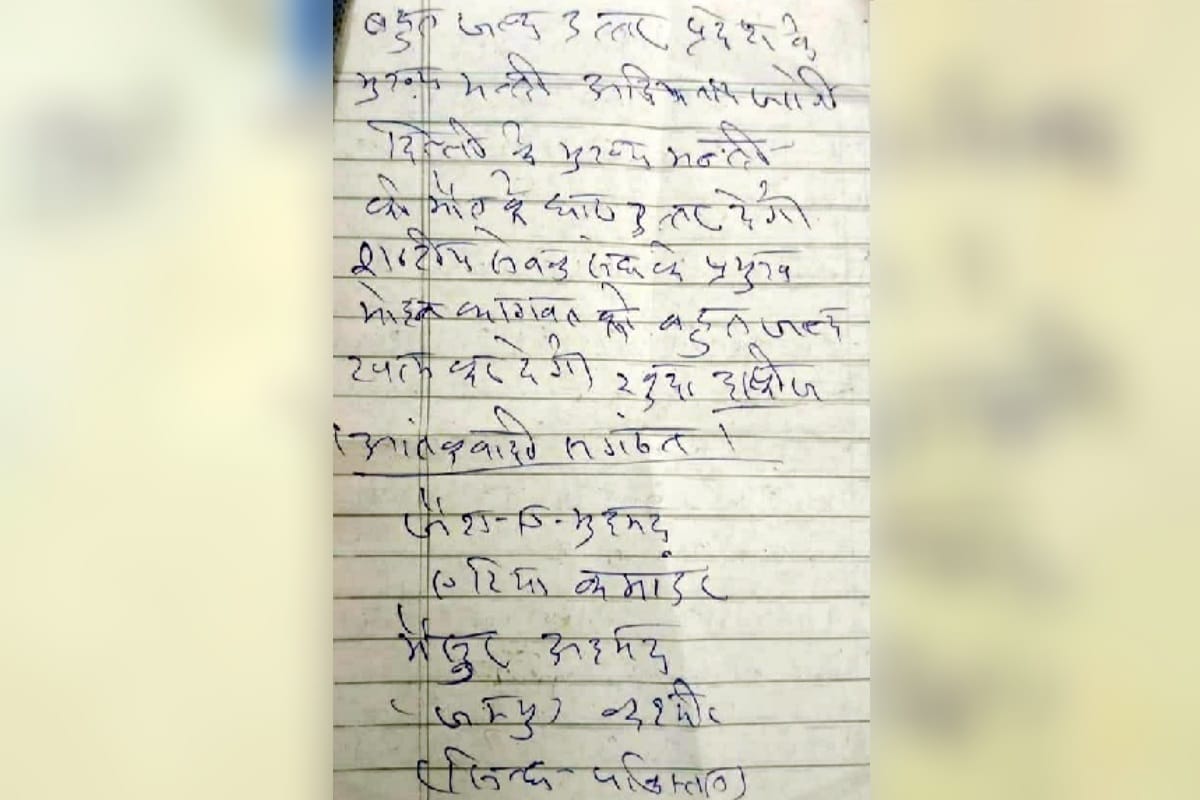 बहुत जल्द उत्तर प्रदेश के
मुख्य मन्त्री आदित्यनाथ जोगी
दिल्ली के मुख्य मन्त्री
को मौत के घाट उतार देंगे
सेवक संघ के प्रमुख
मोहन भागवत को बहुत जल्द
खत्म कर देंगे खुदा हाफीज
आंतकवादी संगठन।
जैश-ऐ-मुहमद
एरिया कमाडर
अहमद
(जम्मु) कश्मीर
(सिन्ध-पाकिस्तान)